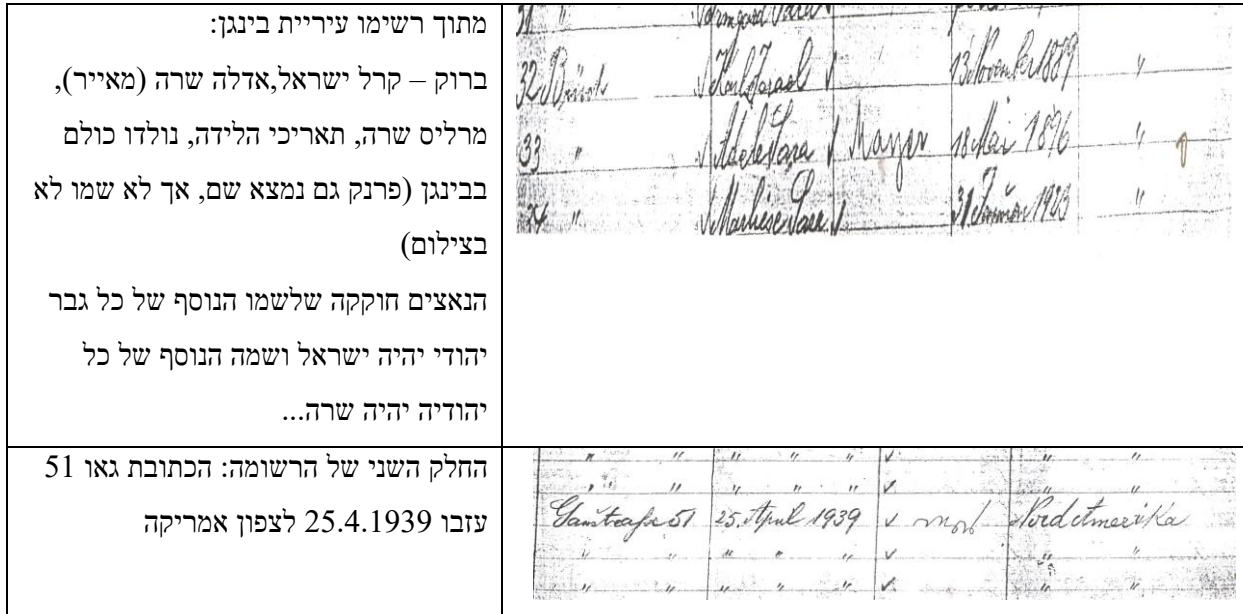 מתוך רשימו עיריית בינגן:
ברוק – קרל ישראל,אדלה שרה (מאייר),
מרליס שרה, תאריכי הלידה, נולדו כולם
בבינגן (פרנק גם נמצא שם, אך לא שמו לא
בצילום)
הנאצים חוקקה שלשמו הנוסף של כל גבר
יהודי יהיה ישראל ושמה הנוסף של כל
יהודיה יהיה שרה...
31 " Sara
32 Brück √ Karl Israel √ 13. November 1889 "
33 " √ Adele Sara √ Mayer 18. Mai 1896 "
34 " √ Marliese Sara √ 31. Januar 1923 "
החלק השני של הרשומה: הכתובת גאו 51
עזבו 25.4.1939 לצפון אמריקה
" " " " " √ " "
" " " " " √ " "
Gaustraße 51 25. April 1939 √ Nordamerika
" " " " " √ " "
" " " " " √ " "